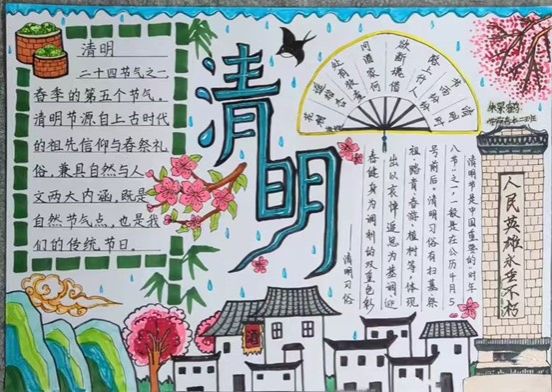 清明
二十四节气之一,
春季的第五个节气。
清明节源自上古时代
的祖先信仰与春祭礼
俗,兼具自然与人
文两大内涵,既是
自然节气点,也是我
们的传统节日。
清明
路上行人
欲断魂借
问酒家何
清明节是中国重要的"时年
八节"之一,一般是在公历4月5
号前后。清明习俗有扫墓祭
祖、踏青、春游、植树等,体现
出以哀悼追思为基调、迎
春健身为调剂的双重色彩
清明习俗
人民英雄永垂不朽
酒